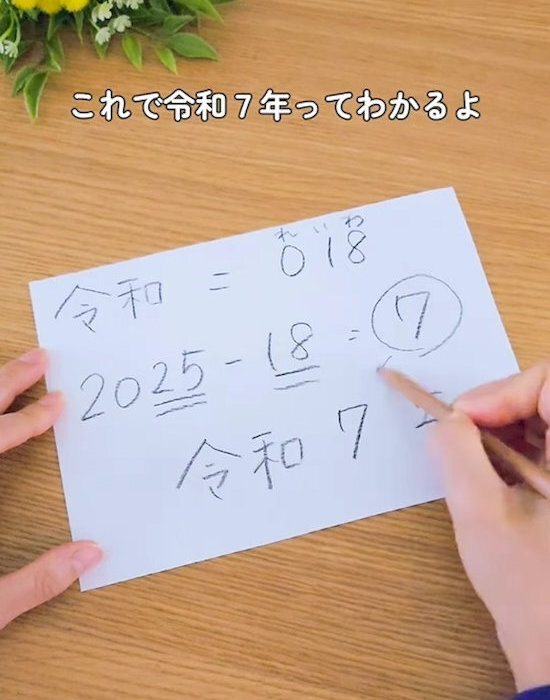 これで令和７年ってわかるよ
れいわ
令和 = 018
2025 - 18 = 7
令和 7